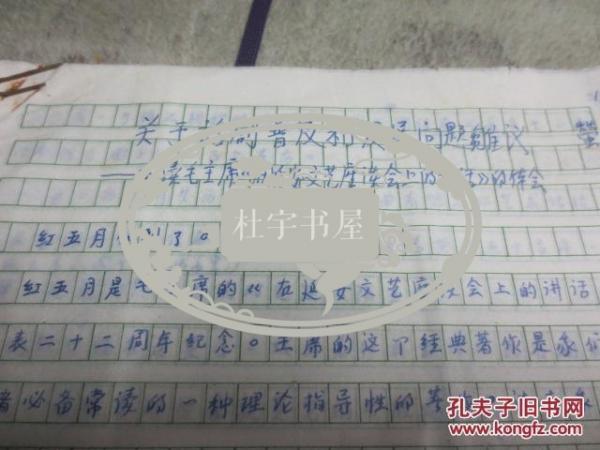 关于 的普及和 问题雜议
读毛主席《 文艺座谈会上的 》的体会
杜宇书屋
红五月 了。
红五月是毛 席的《在延安文艺座谈会上的讲话
表二十二周年纪念。主席的这个经典著作是我们
者必备常读的一种理论指导性的
孔夫子旧书网
www.kongfz.com